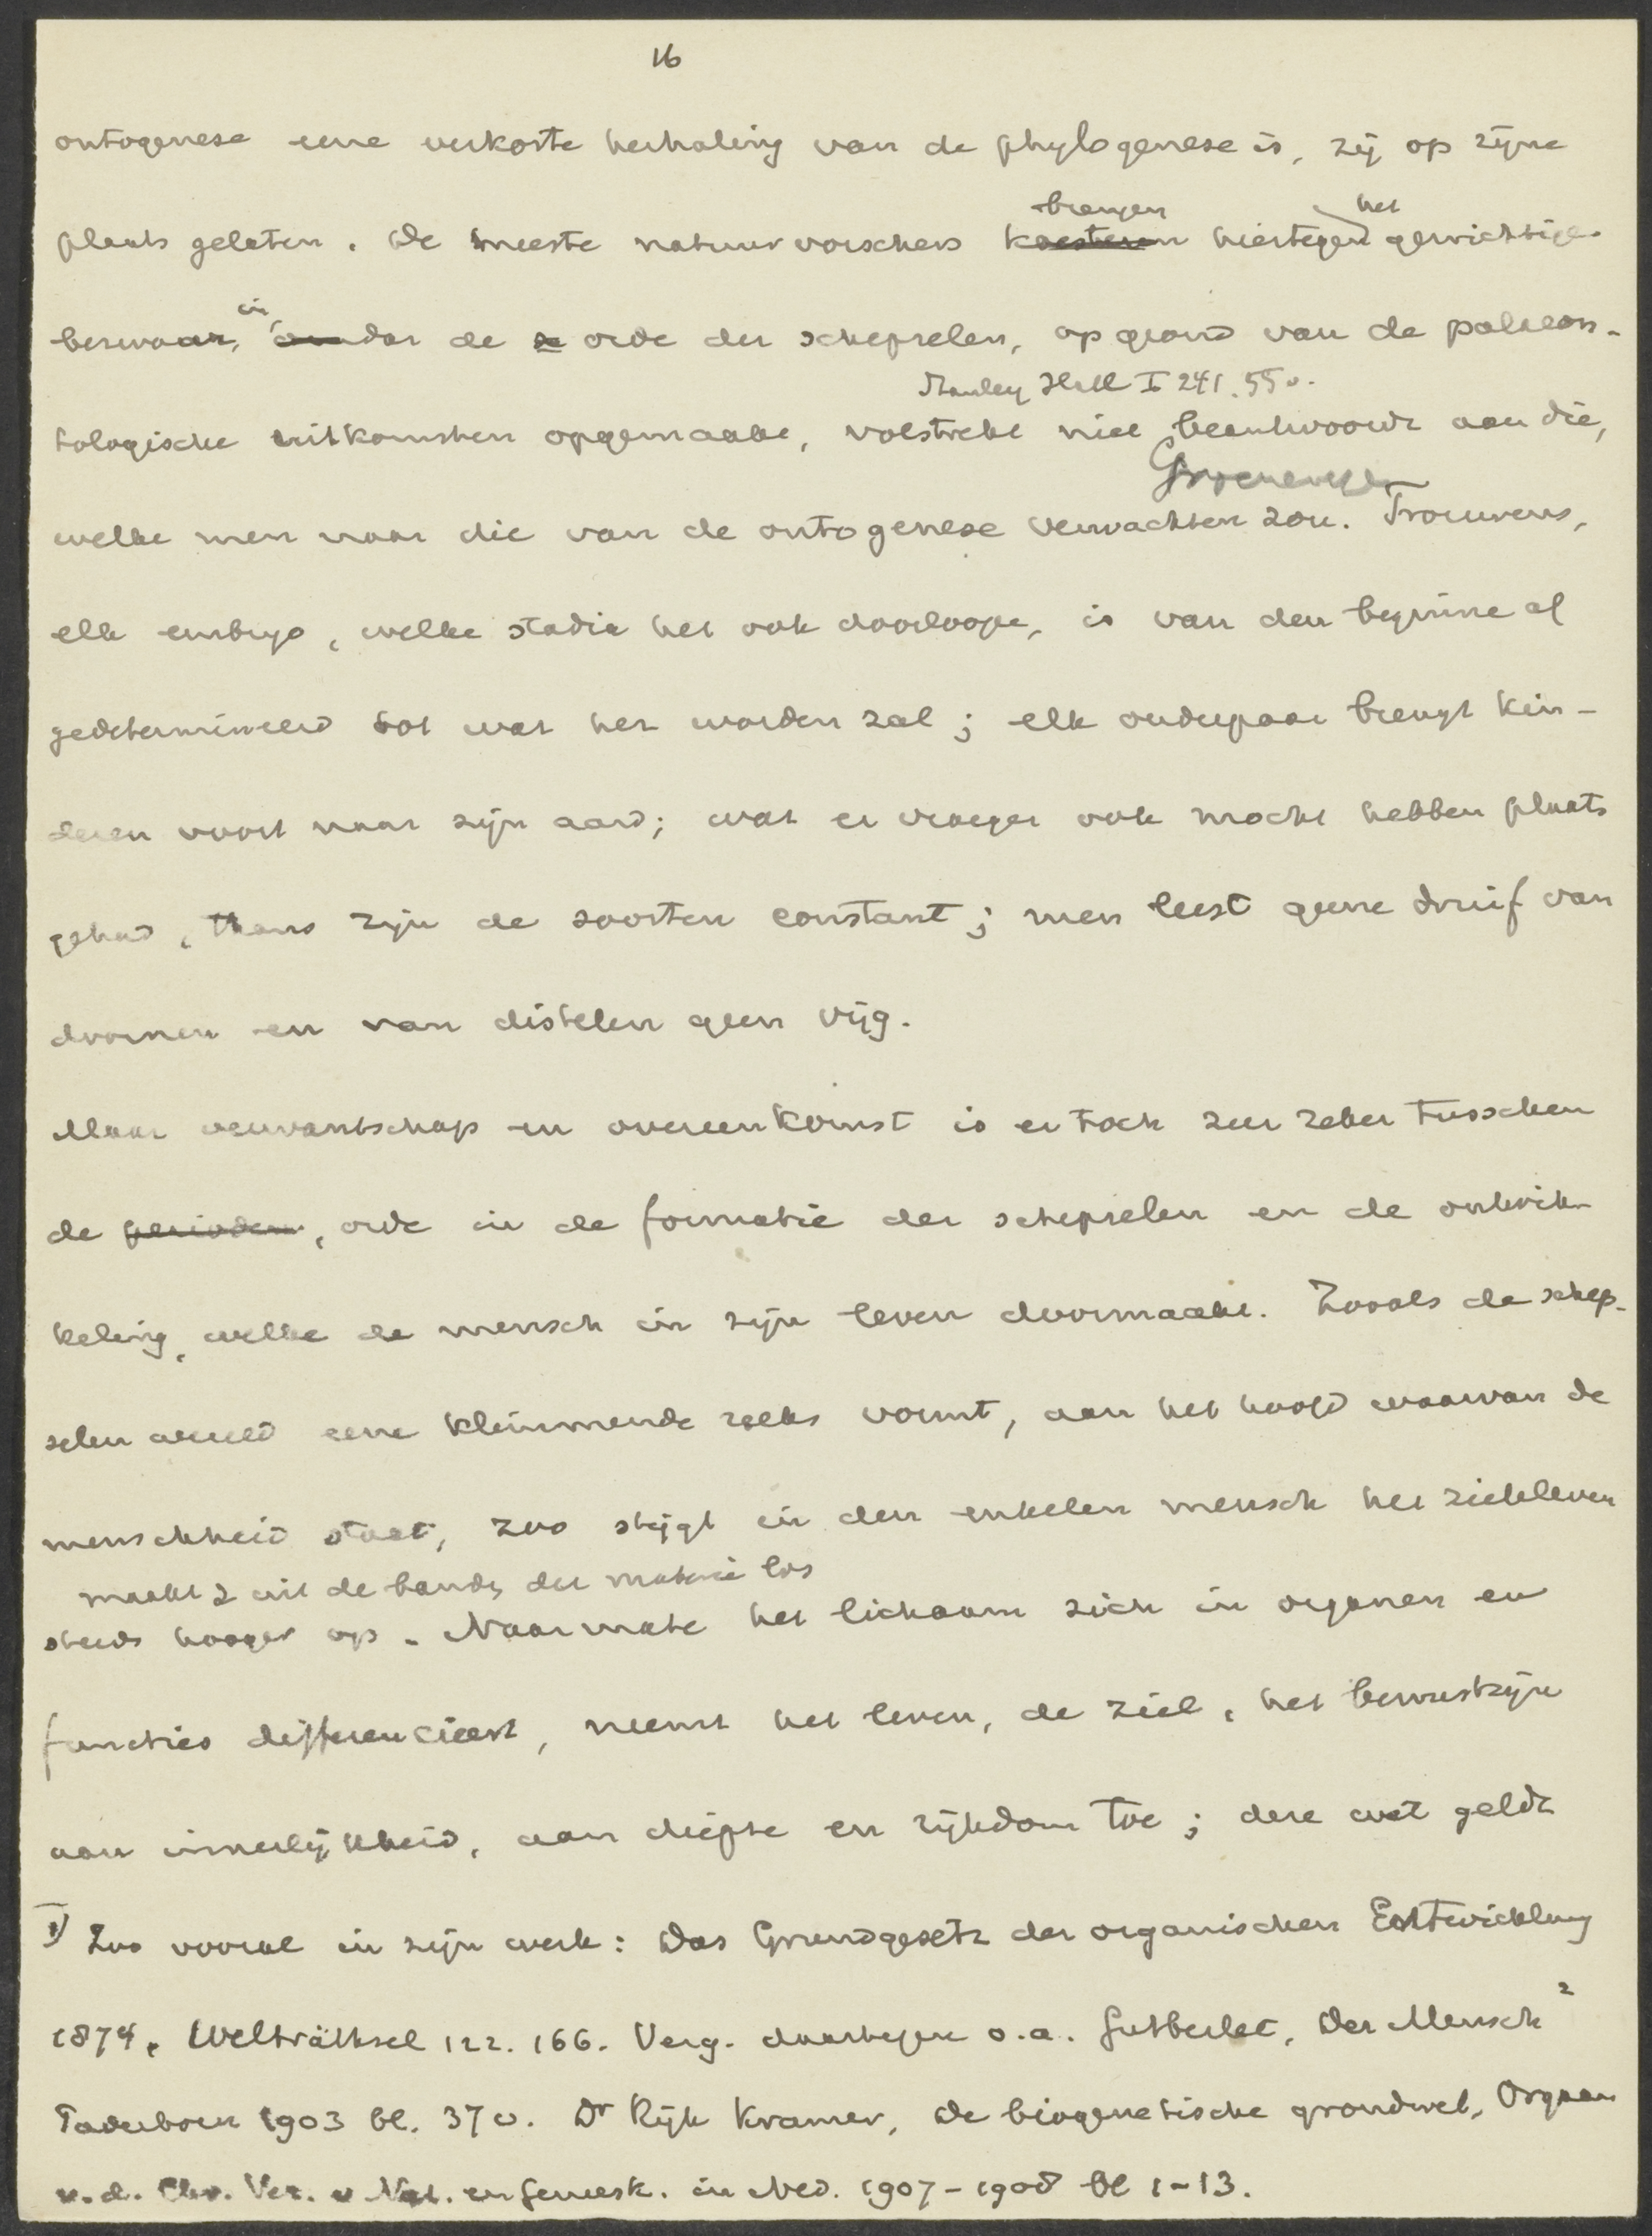 16
ontogenese eene verkorte herhaling van de phylogenese is, zij op zijne
brengen het
plaats gelaten. De meeste natuurvorschers koesteren hiertegen gewichtige
in
bezwaar, omdat de orde der schepselen, op grond van de palaeon-
Stanley Hall I 241. 55v.
tologische uitkomsten opgemaakt, volstrekt niet beantwoordt aan die,
welke men naar die van de ontogenese verwachten zou. Trouwens,
elk embryo, welke stadia het ook doorloope, is van den beginne af
gedetermineerd tot wat het worden zal; elk ouderpaar brengt kin-
deren voort naar zijn aard; wat er vroeger ook mocht hebben plaats
gehad, thans zijn de soorten constant; men leest geene druif van
doornen en van distelen geen vijg.
Maar verwantschap en overeenkomst is er toch zeer zeker tusschen
de perioden, orde in de formatie der schepselen en de ontwik-
keling, welke de mensch in zijn leven doormaakt. Zooals de schep-
selen wereld eene klimmende reeks vormt, aan het hoofd waarvan de
menschheid staat, zoo stijgt in den enkelen mensch het zieleleven
maakt z uit de banden der materie los
steeds hooger op. Naarmate het lichaam zich in organen en
functies differencieert, neemt het leven, de ziel, het bewustzijn
aan innerlijkheid, aan diepte en rijkdom toe; deze wet geldt
1) Zoo vooral in zijn werk: Das Grundgesetz der organischen Entwicklung
1874, Welträthsel 122. 166. Verg. daartegen o.a. Gutberlet, Der Mensch 2
Paderborn 1903 bl. 37v. Dr Rijk Kramer, De biogenetische grondwet, Orgaan
v.d. Chr. Ver. v Nat. en Geneesk. in Ned. 1907-1908 bl 1-13.